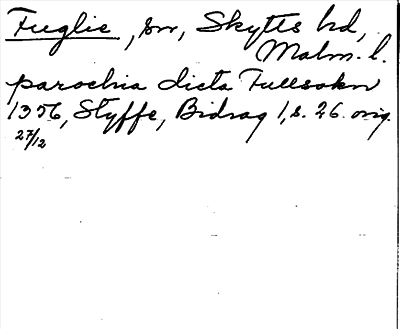 Fuglie, sn, Skytts hd,
Malm. l.
parochia dicta Fullsokn
1356, Styffe, Bidrag 1, s. 26. orig.
27/12